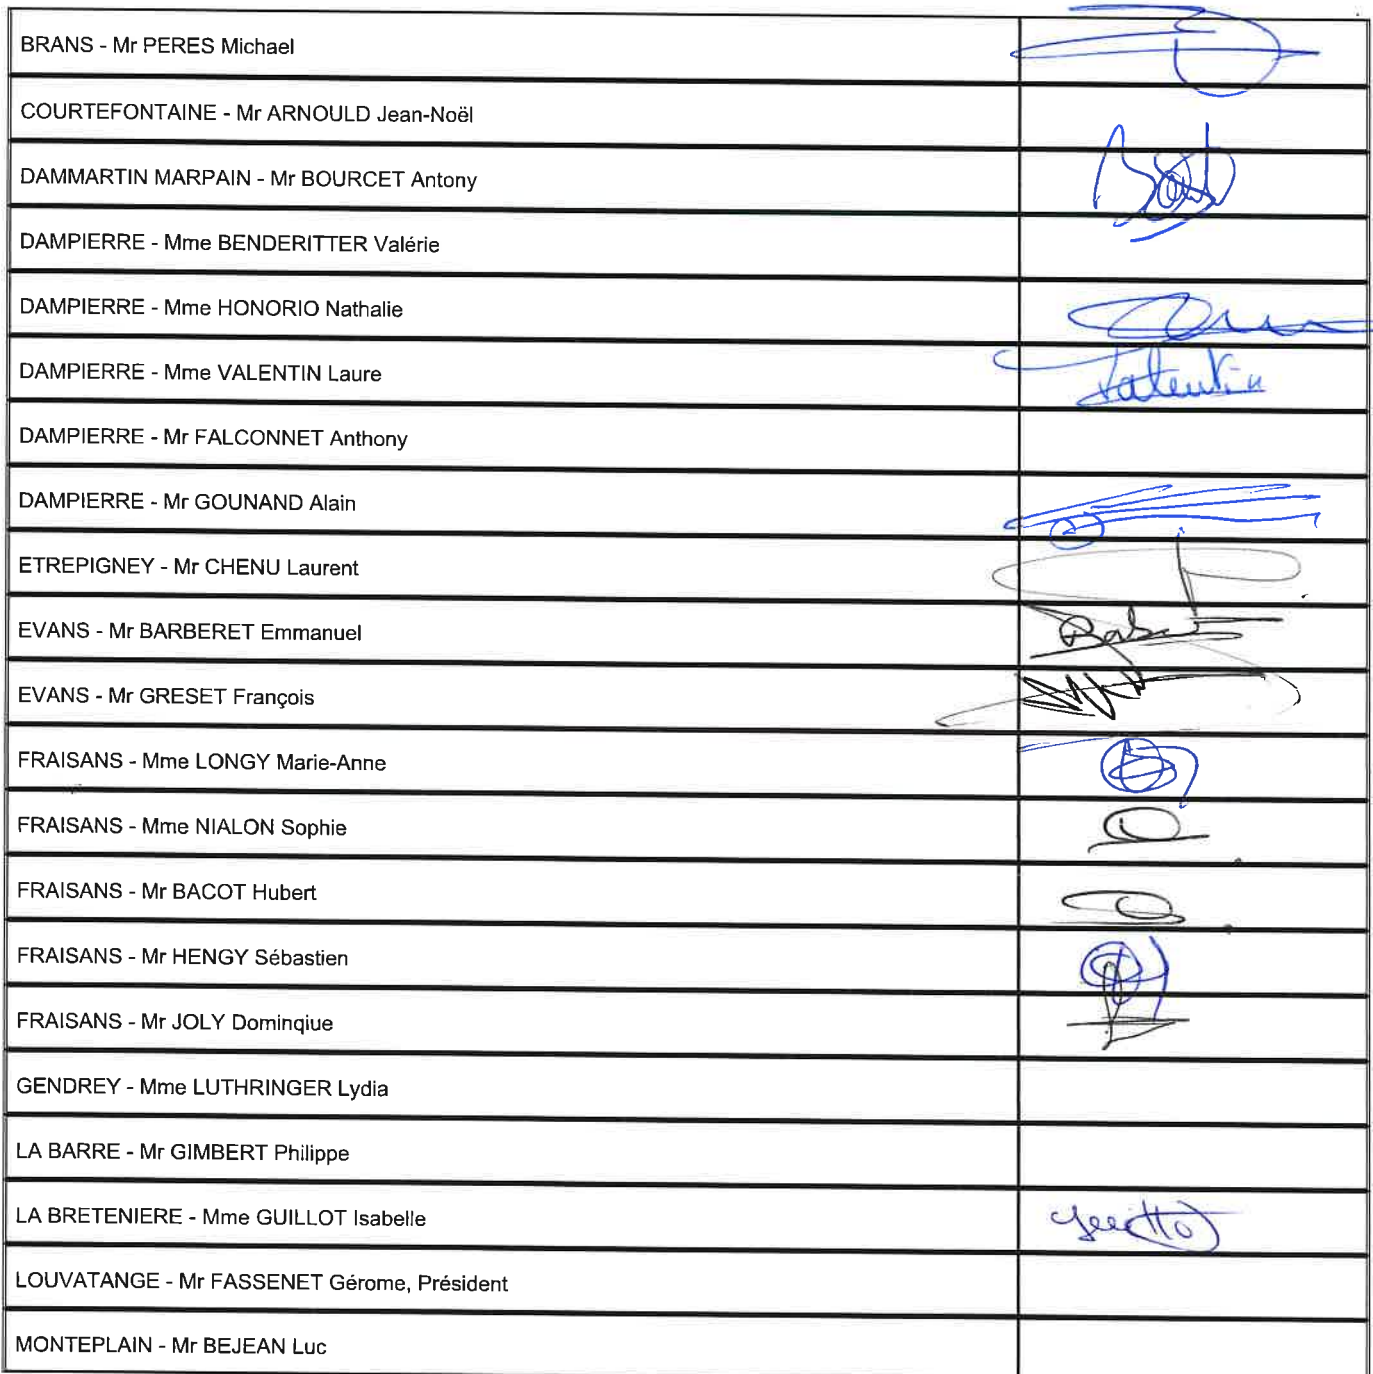 BRANS - Mr PERES Michael
COURTEFONTAINE - Mr ARNOULD Jean-Noël
DAMMARTIN MARPAIN - Mr BOURCET Antony
DAMPIERRE - Mme BENDERITTER Valérie
DAMPIERRE - Mme HONORIO Nathalie
DAMPIERRE - Mme VALENTIN Laure
Valentin
DAMPIERRE - Mr FALCONNET Anthony
DAMPIERRE - Mr GOUNAND Alain
ETREPIGNEY - Mr CHENU Laurent
EVANS - Mr BARBERET Emmanuel
EVANS - Mr GRESET François
FRAISANS - Mme LONGY Marie-Anne
FRAISANS - Mme NIALON Sophie
FRAISANS - Mr BACOT Hubert
FRAISANS - Mr HENGY Sébastien
FRAISANS - Mr JOLY Dominqiue
GENDREY - Mme LUTHRINGER Lydia
LA BARRE - Mr GIMBERT Philippe
LA BRETENIERE - Mme GUILLOT Isabelle
LOUVATANGE - Mr FASSENET Gérome, Président
MONTEPLAIN - Mr BEJEAN Luc